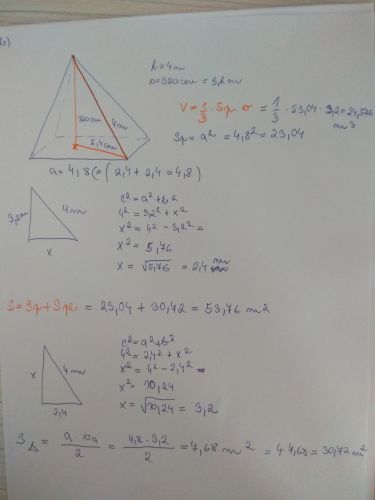 b)
h = 4m
v = 320cm = 3,2m
V = 1/3 · Sp · v = 1/3 · 23,04 · 3,2 = 24,576 m³
Sp = a² = 4,8² = 23,04
320cm
4m
2,4cm
a = 4,8 (= (2,4 + 2,4 = 4,8)
3,2m
4m
x
c² = a² + b²
4² = 3,2² + x²
x² = 4² - 3,2² =
x² = 5,76
x = √5,76 = 2,4 m
S = Sp + Spl = 23,04 + 30,72 = 53,76 m²
x
4m
2,4
c² = a² + b²
4² = 2,4² + x²
x² = 4² - 2,4² =
x² = 10,24
x = √10,24 = 3,2
S△ = a · va / 2 = 4,8 · 3,2 / 2 = 7,68 m² = 4 · 7,68 = 30,72 m²